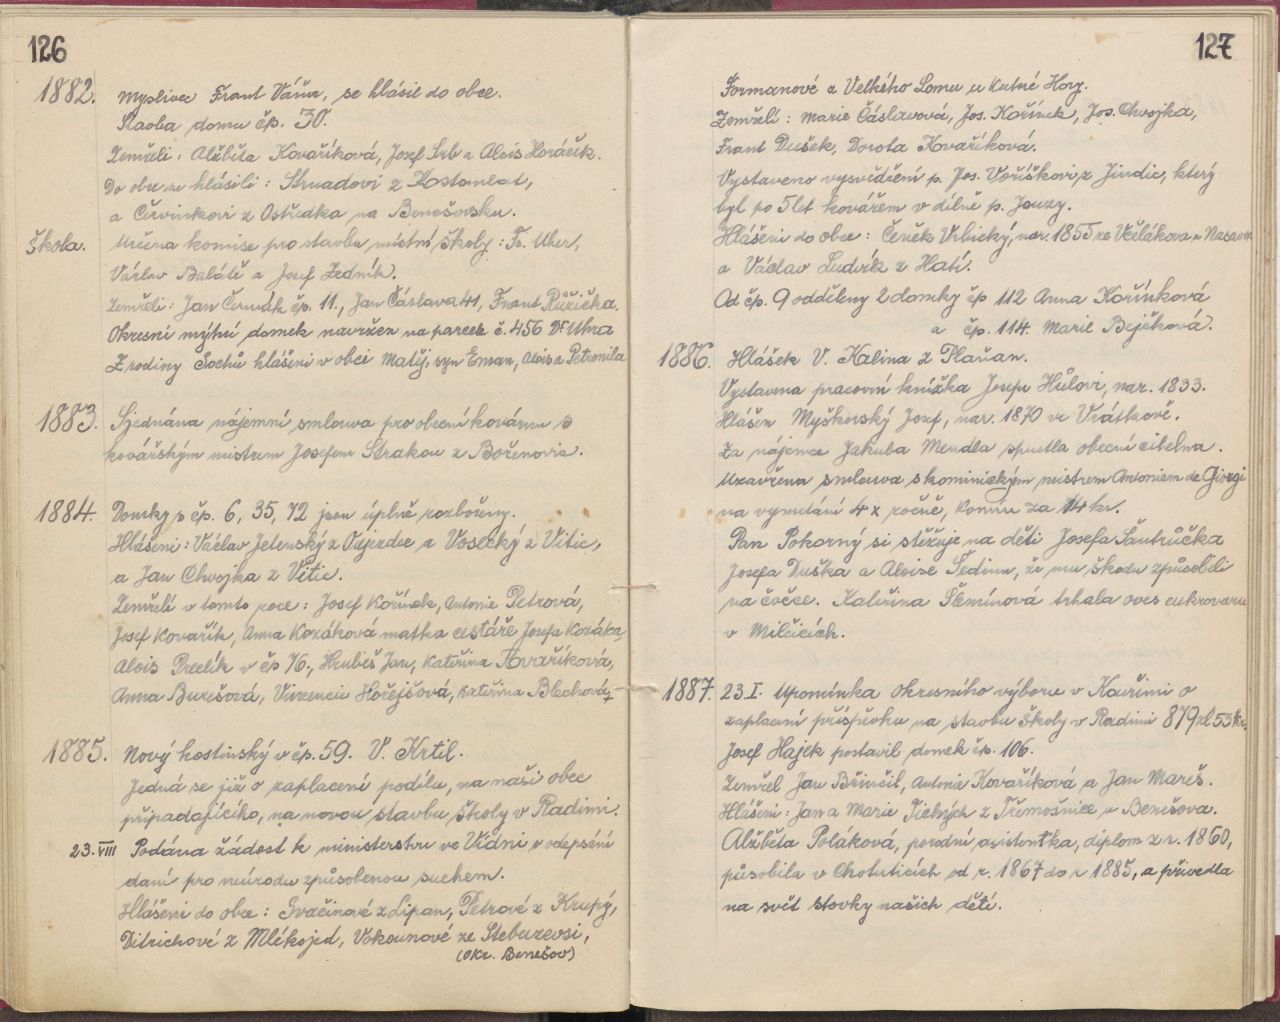 126
1882. Myslivec Frant Váňa, se hlásil do obce.
Stavba domu čp. 30.
Zemřeli: Alžběta Kovaříková, Josef Srb a Alois Horáček.
Do obce se hlásili: Strnadovi z Kostomlat,
a Červinkovi z Ostředka na Benešovsku.
Škola. Určena komise pro stavbu místní školy: Fr. Uher,
Václav Baláté a Josef Zedník.
Zemřeli: Jan Čermák čp. 11., Jan Čáslava 41, Frant. Růžička.
Okresní mýtní domek navržen na parcele č. 456 Dr Uhra
Z rodiny Sochů hlášeni v obci Matěj, syn Eman, Alois a Petronila
1883. Sjednána nájemní smlouva pro obecní kovárnu s
kovářským mistrem Josefem Strakou z Bořenovic.
1884. Domky s čp. 6, 35, 72 jsou úplně rozbořeny.
Hlášeni: Václav Jetenský z Oujezdce a Vosecký z Vitic,
a Jan Chvojka z Vitic.
Zemřelí v tomto roce: Josef Kořínek, Antonie Petrová,
Josef Kovařík, Anna Kozáková matka cestáře Josefa Kozáka,
Alois Preclík v čp 76., Hrubeš Jan, Kateřina Kovaříková,
Anna Burešová, Vincencie Hořejšová, Kateřina Blechová
1885. Nový hostinský v čp. 59. V. Krtil.
Jedná se již o zaplacení podílu, na naši obec
připadajícího, na novou stavbu školy v Radimi.
23. VIII Podána žádost k ministerstvu ve Vídni o odepsání
daní pro neúrodu způsobenou suchem.
Hlášeni do obce: Svačinové z Lipan, Petrové z Krupý,
Ditrichové z Mlékojed, Vokounové ze Stebuzevsi,
(okr. Benešov)
127
Formanové z Velkého Lomu u Kutné Hory.
Zemřeli: Marie Čáslavová, Jos. Kořínek, Jos. Chvojka,
Frant Dušek, Dorota Kovaříková.
Vystaveno vysvědčení p. Jos. Voříškovi z Jindic, který
byl po 5 let kovářem v dílně p. Jouzy.
Hlášeni do obce: Čeněk Vrbický, nar. 1855 ze Včelákova u Nasavrk
a Václav Ludvík z Hatí.
Od čp. 9 odděleny 2 domky čp 112 Anna Kořínková
a čp. 114. Marie Bejčková.
1886. Hlášek V. Kalina z Plaňan.
Vystavena pracovní knížka Josefu Hůlovi, nar. 1833.
Hlášen Myškovský Josef, nar. 1870 ve Vrátkově.
Za nájemce Jakuba Mendla spustla obecní cihelna.
Uzavřena smlouva s kominickým mistrem Antoniem de Giorgi
na vymetání 4 x ročně, komínu za 14 kr.
Pan Pokorný si stěžuje na děti Josefa Šantrůčka
Josefa Duška a Aloise Šedinu, že mu škodu způsobili
na čočce. Kateřina Šlemínová trhala oves cukrovaru
v Milčicích.
1887. 23.I. Upomínka okresního výboru v Kouřimi o
zaplacení příspěvku na stavbu školy v Radimi 879 zl 53 kr.
Josef Hajek postavil domek čp. 106.
Zemřel Jan Břinčil, Antonie Kovaříková a Jan Mareš.
Hlášeni: Jan a Marie Tichých z Třemošnice u Benešova.
Alžběta Poláková, porodní asistentka, diplom z r. 1860,
působila v Chotuticích od r. 1867 do r 1885, a přivedla
na svět stovky našich dětí.